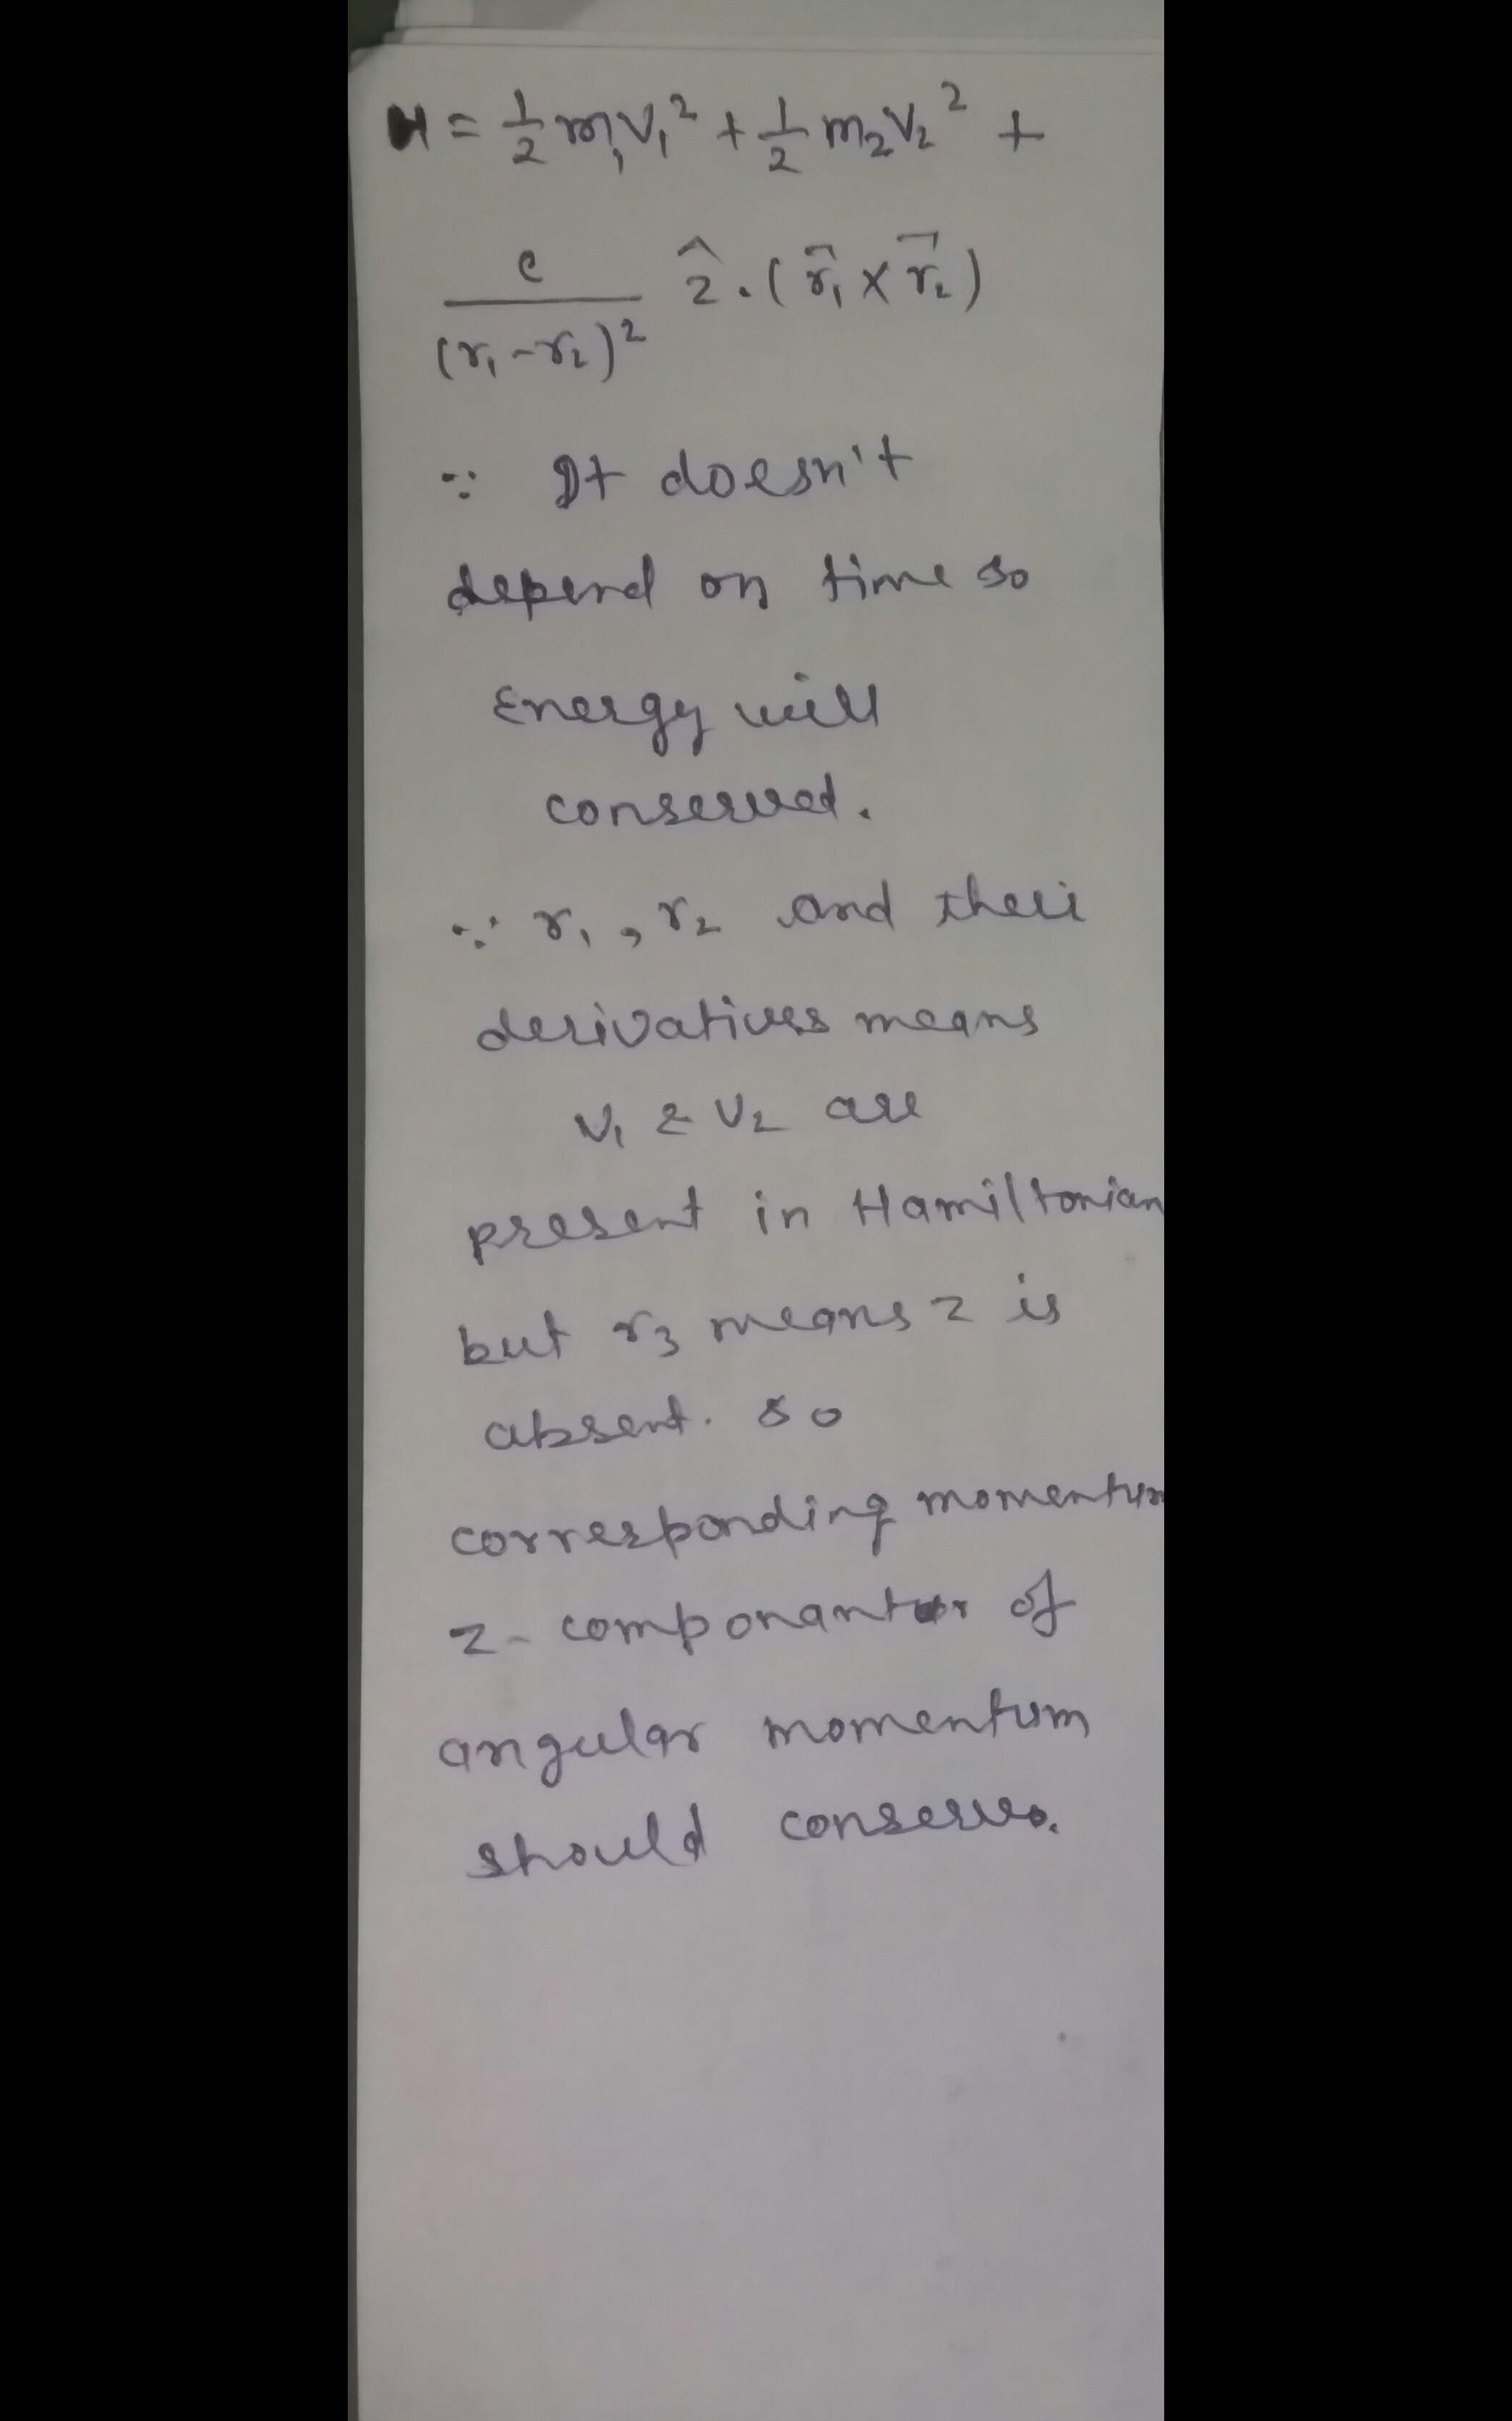 H = 1/2 m₁v₁² + 1/2 m₂v₂² +
c/(r₁-r₂)² ẑ.(r⃗₁ × r⃗₂)
∵ It doesn't
depend on time so
Energy will
conserved.
∵ r₁, r₂ and their
derivatives means
v₁ & v₂ are
present in Hamiltonian
but r₃ means z is
absent. so
corresponding momentum
z-componant of
angular momentum
should conserve.